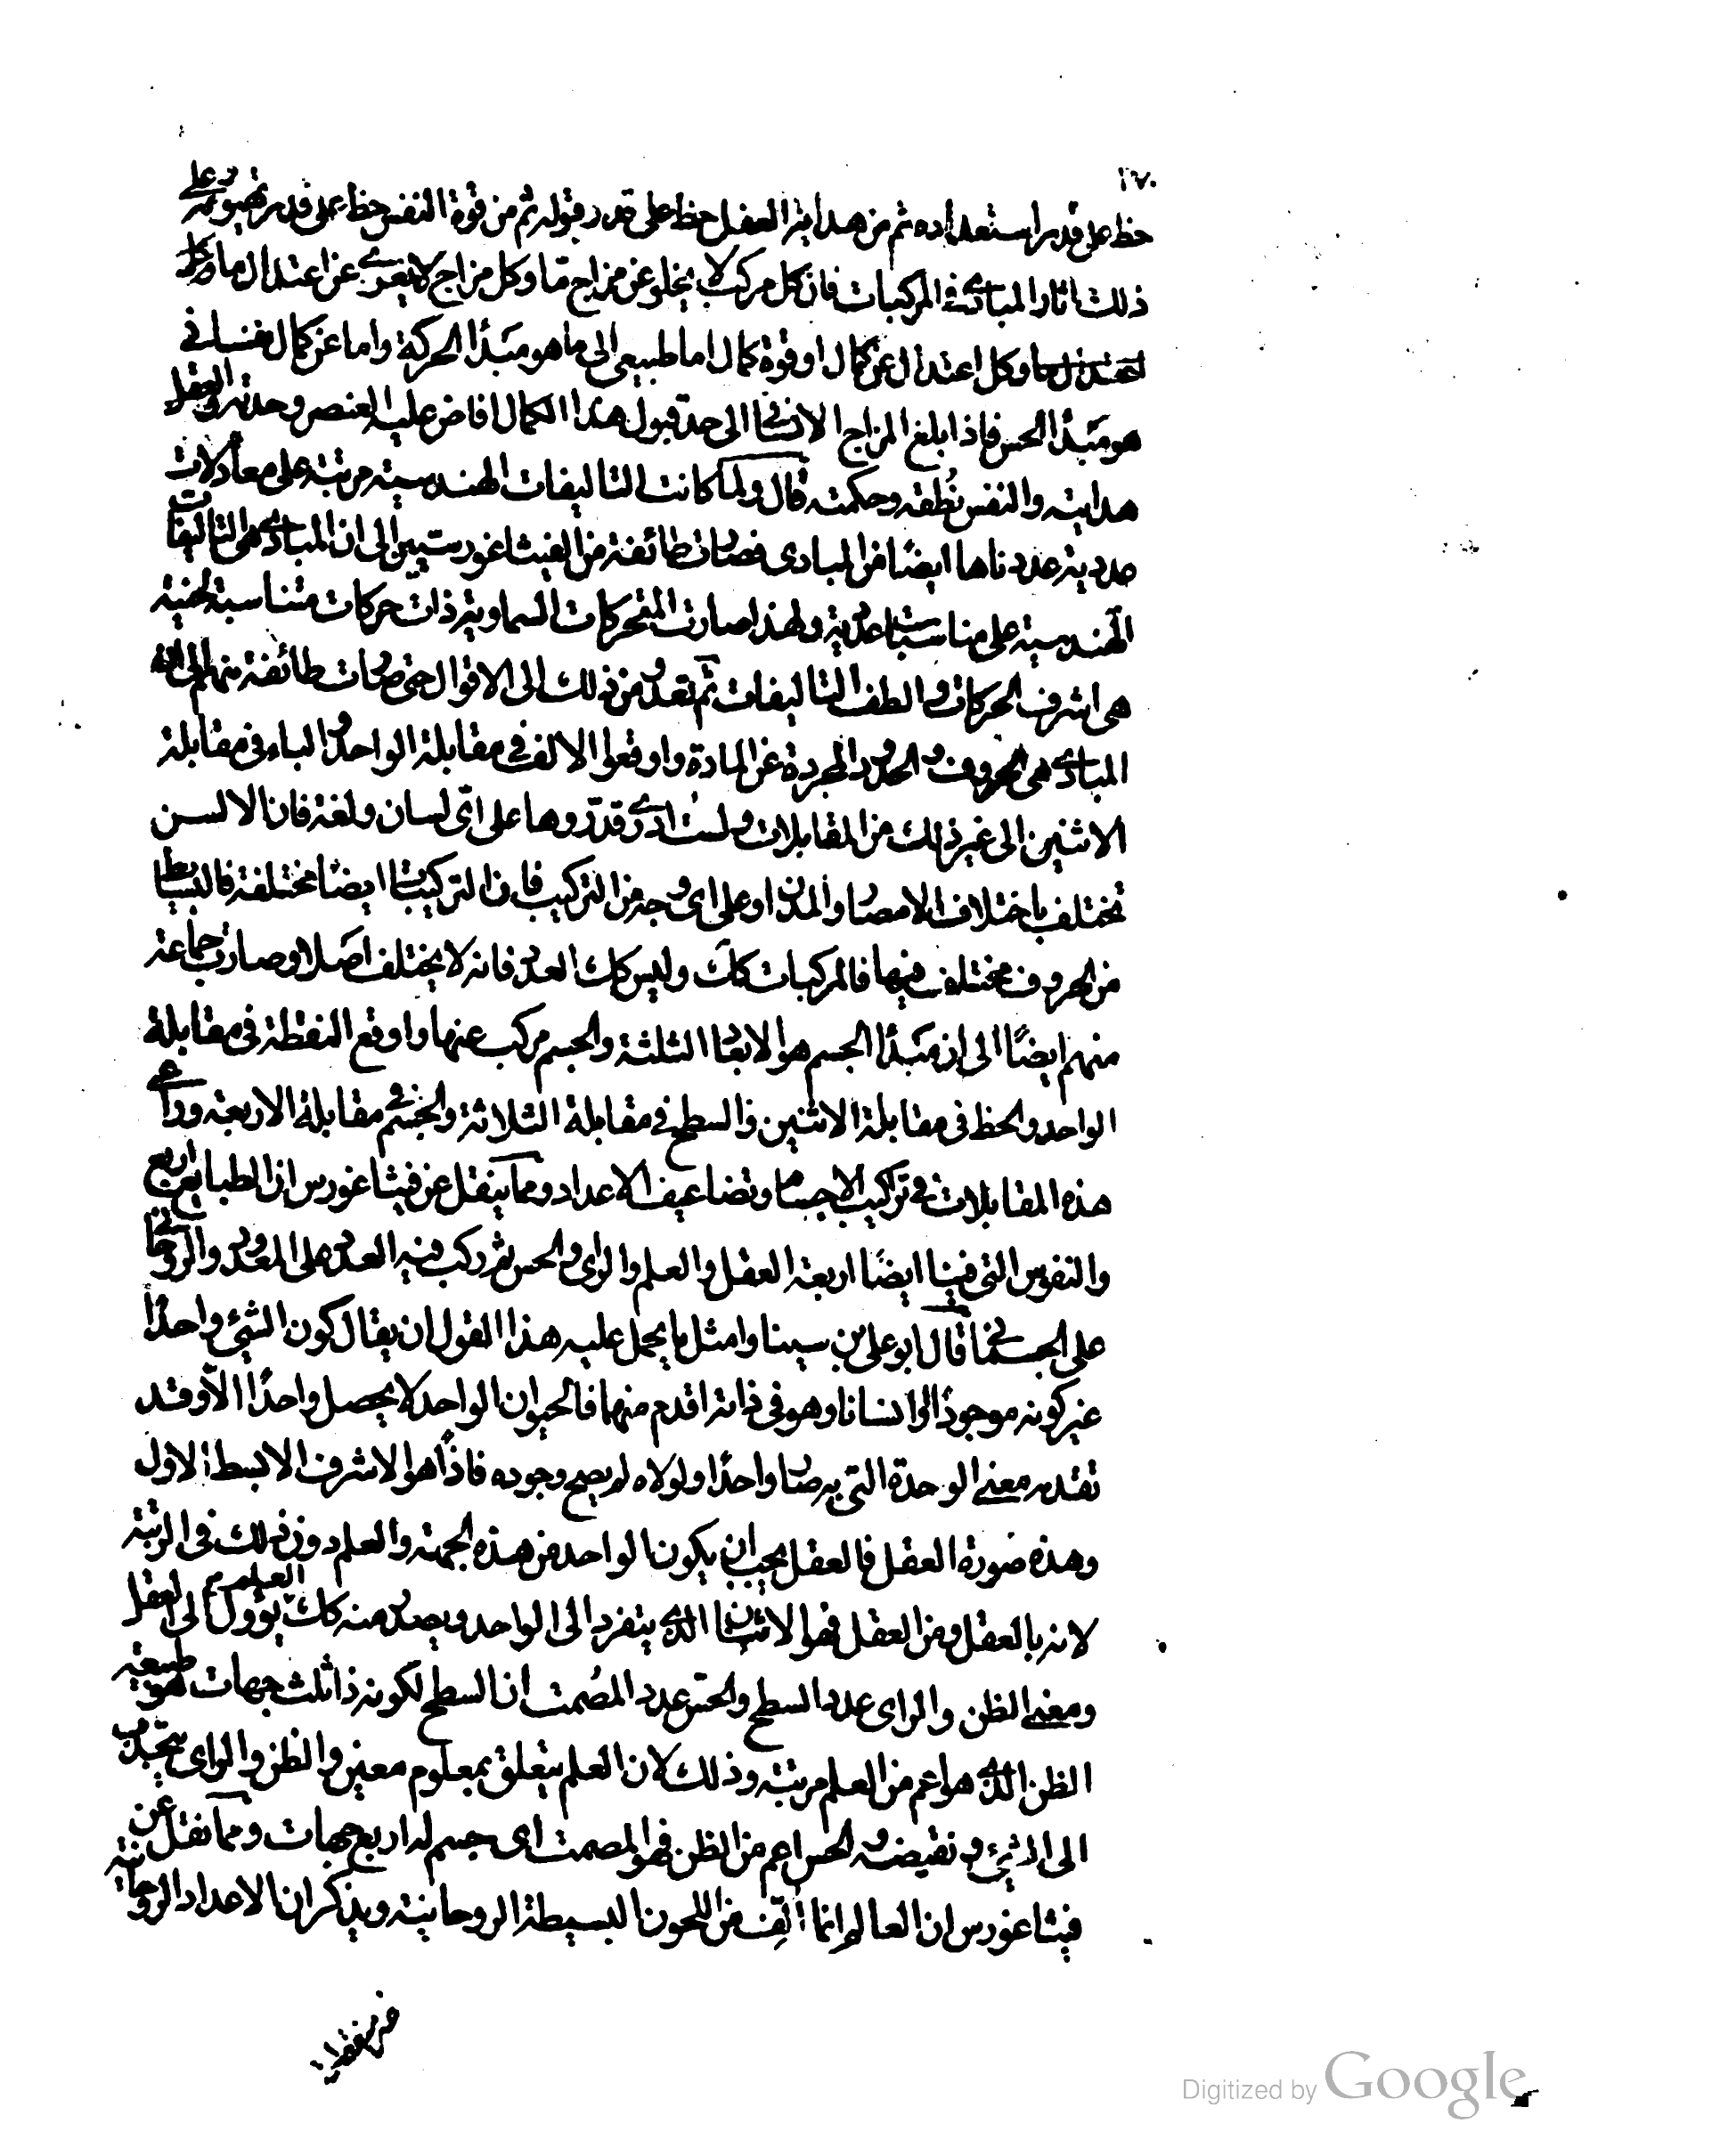 ١٧٠
حظ على قدر استعداده ثم من هداية العقل حظ على قدر قبوله ثم من قوة النفس حظ على قدر تهيوئه وعلى
ذلك اثار المبادى فى المركبات فان كل مركب لا يخلو عن مزاج ما وكل مزاج لا يعرى عن اعتدال ما وكل
اعتدال ما وكل اعتدال عن كمال او قوة كمال اما طبيعى الى ما هو مبدأ الحركة واما عن كمال نفسانى
هو مبدأ الحس فاذا بلغ المزاج الانسانى الى حد قبول هذا الكمال افاض عليه العنصر وحدته والعقل
هدايته والنفس نُطقه وحكمته قال ولما كانت التاليفات الهندسية مرتبة على معادلات
عددية عددناها ايضًا من المبادى فصارت طائفة من الفيثاغورسيين الى ان المبادى هى التاليفات
الهندسية على مناسبات عددية ولهذا صارت المتحركات السماوية ذات حركات متناسبة لحنية
هى اشرف الحركات والطف التاليفات ثم تعدوا من ذلك الى الاقوال حتى صارت طائفة منهم الى ان
المبادى هى الحروف والحدود المجردة عن المادة واوقعوا الالف فى مقابلة الواحد والباء فى مقابلة
الاثنين الى غير ذلك من المقابلات ولست ادرى قدروها على اى لسان ولغة فان الالسن
تختلف باختلاف الامصار والمدن او على اى وجه من التركيب فان التركيبات ايضًا مختلفة فالبسايط
من الحروف مختلف فيها فالمركبات كك وليس كك العدد فانه لا يختلف اصلا وصارت جماعة
منهم ايضًا الى ان مبدأ الجسم هو الابعاد الثلثة والجسم مركب عنها واوقع النقطة فى مقابلة
الواحد والخط فى مقابلة الاثنين والسطح فى مقابلة الثلاثة والجسم فى مقابلة الاربعة وراعى
هذه المقابلات فى تراكيب الاجسام وتضاعيف الاعداد ومما ينقل عن فيثاغورس ان الطبايع اربع
والنفوس التى فينا ايضًا اربعة العقل والعلم والراى والحس ثم ركب فيه العدد على المعدود والروحانى
على الجسمانى قال ابو على بن سينا وامثل ما يحمل عليه هذا القول ان يقال كون الشئ واحدًا
غير كونه موجودًا او انسانا وهو فى ذاته اقدم منهما فالحيوان الواحد لا يحصل واحدًا الا وقد
تقدمه معنى الوحدة التى به صار واحدًا ولولاه لم يصح وجوده فاذًا هو الاشرف الابسط الاول
وهذه صورة العقل فالعقل يجب ان يكون الواحد من هذه الجهة والعلم دون ذلك فى الرتبة
لانه بالعقل ومن العقل فهو الاثنان الذى يتفرد الى الواحد ويصدر منه كك العلم يؤول الى العقل
ومعنى الظن والراى عدد السطح والحس عدد المصُمت ان السطح لكونه ذا ثلث جهات هو طبيعة
الظن الذى هو اعم من العلم مرتبة وذلك لان العلم يتعلق بمعلوم معين والظن والراى ينجذب
الى الشئ ونقيضه والحس اعم من الظن فهو المصمت اى جسم له اربع جهات ومما نقل عن
فيثاغورس ان العالم انما الّف من اللحون البسيطة الروحانية ويذكر ان الاعداد الروحانية